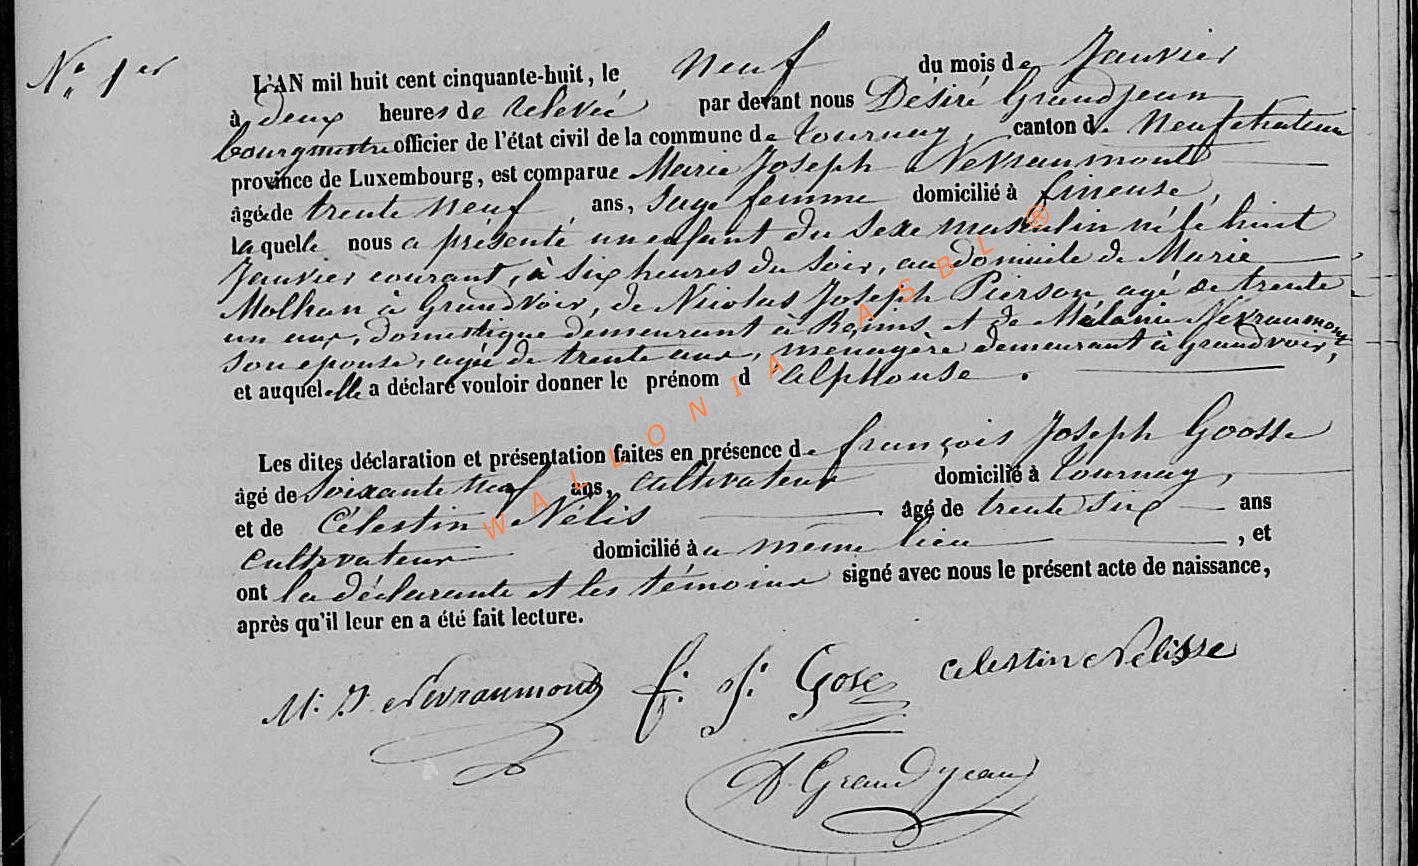 N° 1er
L'AN mil huit cent cinquante-huit, le neuf du mois de Janvier
à deux heures de relevée par devant nous Désiré Grandjean
bourgmestre officier de l'état civil de la commune de Tournay, canton de Neufchateau
province de Luxembourg, est comparue Marie Joseph Nevraumont
âgée de trente neuf ans, sage femme domicilié à fineuse,
laquelle nous a présenté un enfant du sexe masculin né le huit
Janvier courant, à six heures du soir, au domicile de Marie
Molhan à Grandvoir, de Nicolas Joseph Pierson agé de trente
un ans, domestique demeurant à Reims, et de Mélanie Nevraumont
son epouse, agée de trente ans, menagère demeurant à grandvoir,
et auquel elle a déclaré vouloir donner le prénom d'alphonse.
Les dites déclaration et présentation faites en présence de françois Joseph Goosse
âgé de soixante neuf ans, cultivateur domicilié à Tournay,
et de Célestin Nélis âgé de trente six ans
cultivateur domicilié à u meme lieu, et
ont la déclarante et les témoins signé avec nous le présent acte de naissance,
après qu'il leur en a été fait lecture.
M. J. Nevraumont f. J. Gose celestin Nelisse
D. Grandjean
WALLONIA ASBL ®